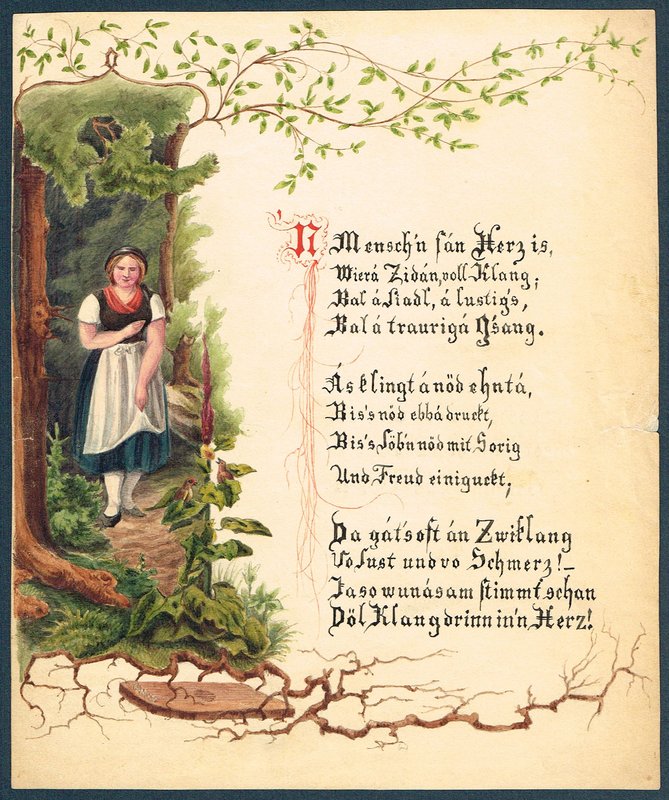 'N Mensch'n sán Herz is,
Wierá Zidán, voll Klang;
Bal á Liadl, á lustig's,
Bal á traurigá G'sang.
Ás klingt á nöd ehntá,
Bis's nöd ebbá druckt,
Bis's Löb'n nöd mit Sorig
Und Freud einiguckt;
Da gát's oft án Zwiklang
Vo Lust und vo Schmerz! –
Ja so wunásam stimmt's chan
Döl Klang drinn in'n Herz!